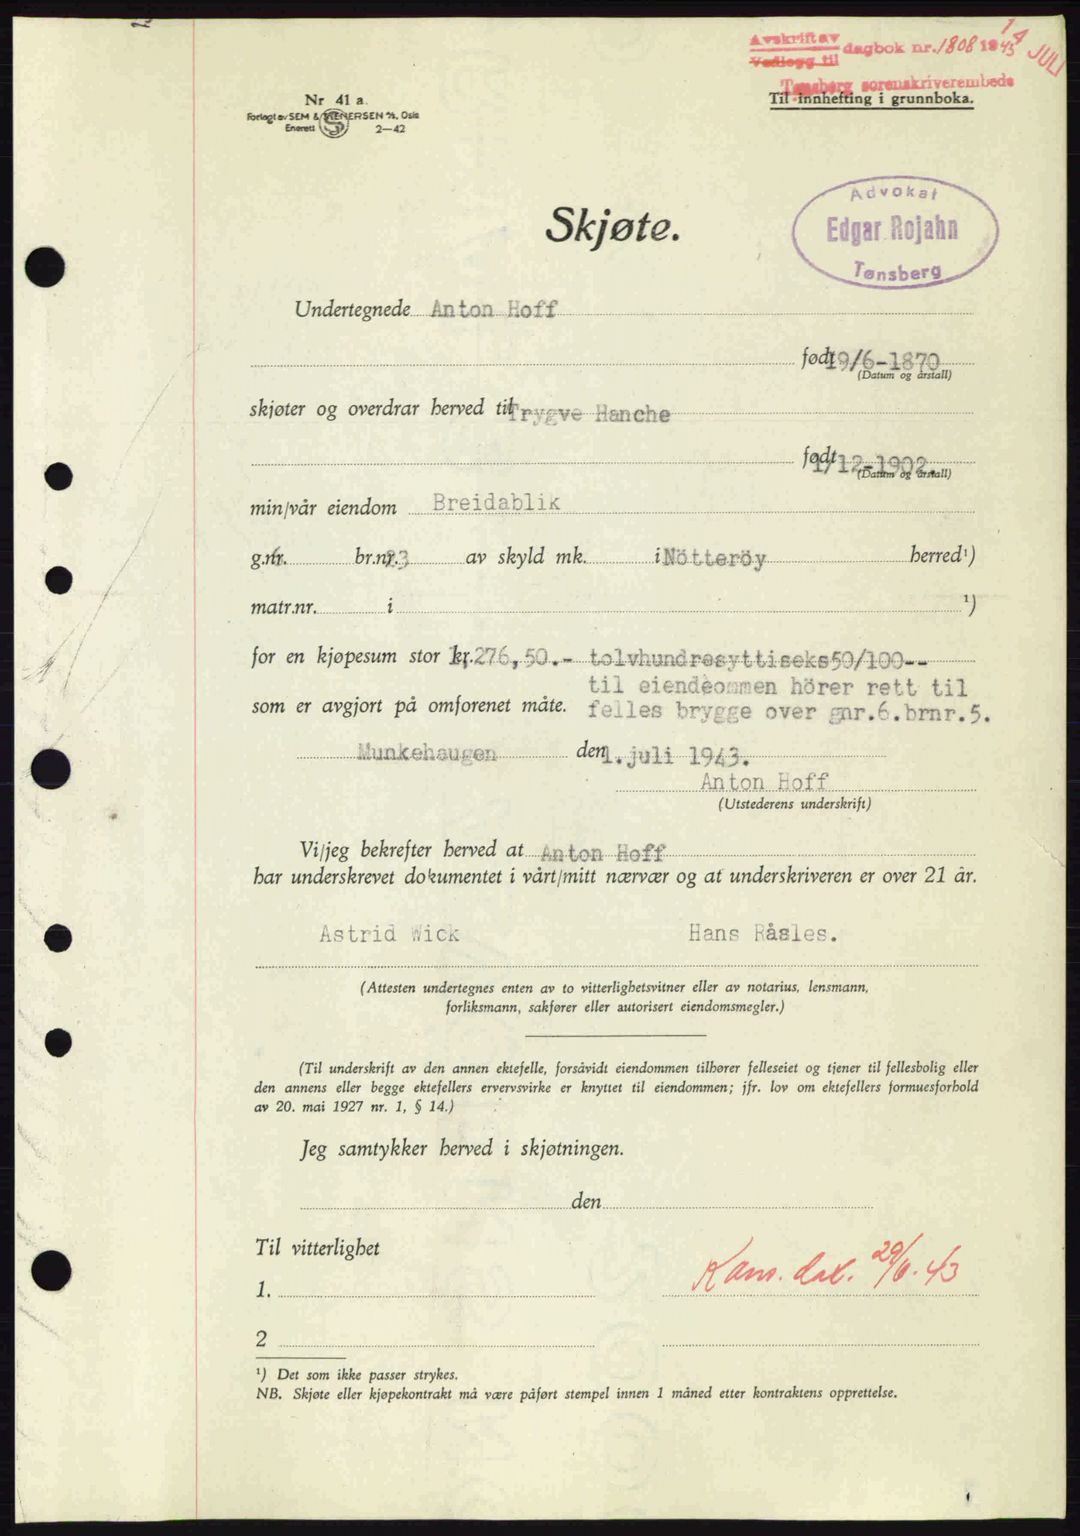 Avskrift av
Vedlegg til dagbok nr. 1808 1943 14 JULI
Tønsberg sorenskriverembede
Til innhefting i grunnboka.
Nr 41 a.
Forlagt av SEM & STENERSEN A/S, Oslo
Enerett 2—42
Advokat
Edgar Rojahn
Tønsberg
Skjøte.
Undertegnede Anton Hoff
født 19/6-1870
(Datum og årstall)
skjøter og overdrar herved til Trygve Hanche
født 1/12-1902.
(Datum og årstall)
min/vår eiendom Breidablik
g.nr. 6 br.nr. 23 av skyld mk. i Nötteröy herred¹)
matr.nr. i ¹)
for en kjøpesum stor kr. 1.276,50.- tolvhundresyttiseks50/100--
til eiendeommen hörer rett til
som er avgjort på omforenet måte. felles brygge over gnr.6.brnr.5.
Munkehaugen den 1. juli 1943.
Anton Hoff
(Utstederens underskrift)
Vi/jeg bekrefter herved at Anton Hoff
har underskrevet dokumentet i vårt/mitt nærvær og at underskriveren er over 21 år.
Astrid Wick Hans Råsles.
(Attesten undertegnes enten av to vitterlighetsvitner eller av notarius, lensmann,
forliksmann, sakfører eller autorisert eiendomsmegler.)
(Til underskrift av den annen ektefelle, forsåvidt eiendommen tilhører felleseiet og tjener til fellesbolig eller
den annens eller begge ektefellers ervervsvirke er knyttet til eiendommen; jfr. lov om ektefellers formuesforhold
av 20. mai 1927 nr. 1, § 14.)
Jeg samtykker herved i skjøtningen.
den
Til vitterlighet
Kons. dat. 29/6. 43
1.
2
¹) Det som ikke passer strykes.
NB. Skjøte eller kjøpekontrakt må være påført stempel innen 1 måned etter kontraktens opprettelse.